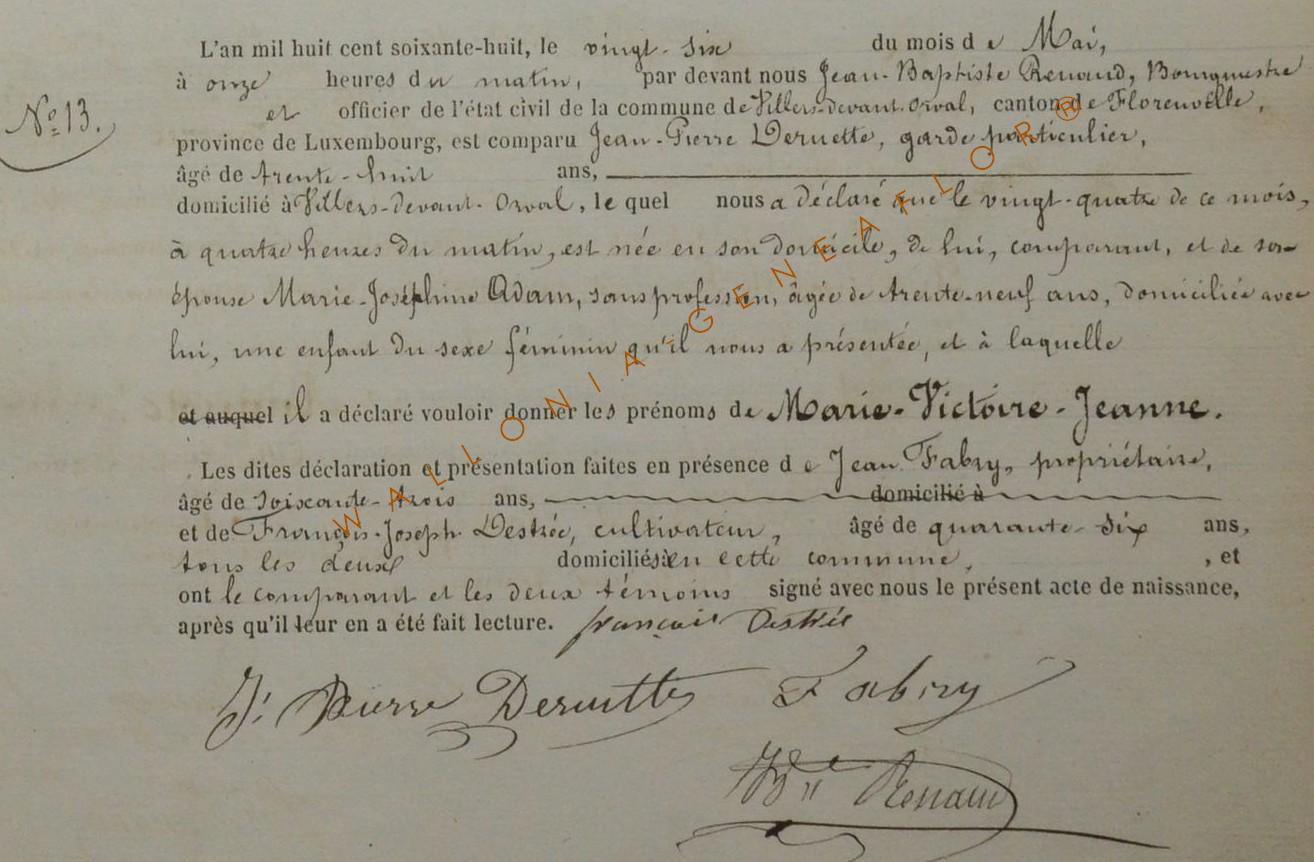 L'an mil huit cent soixante-huit, le vingt-six du mois de Mai,
à onze heures du matin, par devant nous Jean-Baptiste Renaud, Bourgmestre
N° 13.
et officier de l'état civil de la commune de Villers-devant-Orval, canton de Florenville,
province de Luxembourg, est comparu Jean-Pierre Deruette, garde particulier,
âgé de trente-huit ans,
domicilié à Villers-devant-Orval, le quel nous a déclaré que le vingt-quatre de ce mois,
à quatre heures du matin, est née en son domicile, de lui, comparant, et de son
épouse Marie-Joséphine Adam, sans profession, âgée de trente-neuf ans, domiciliée avec
lui, une enfant du sexe féminin qu'il nous a présentée, et à laquelle
et auquel il a déclaré vouloir donner les prénoms de Marie-Victoire-Jeanne.
Les dites déclaration et présentation faites en présence de Jean Fabry, propriétaire,
âgé de soixante-trois ans, domicilié à
et de François-Joseph Destrée, cultivateur, âgé de quarante-six ans,
tous les deux domiciliés en cette commune, , et
ont le comparant et les deux témoins signé avec nous le présent acte de naissance,
après qu'il leur en a été fait lecture. françois Destrée
J. Pierre Deruette Fabry
Bte Renaud
WALLONIA-GENEAFLOR®